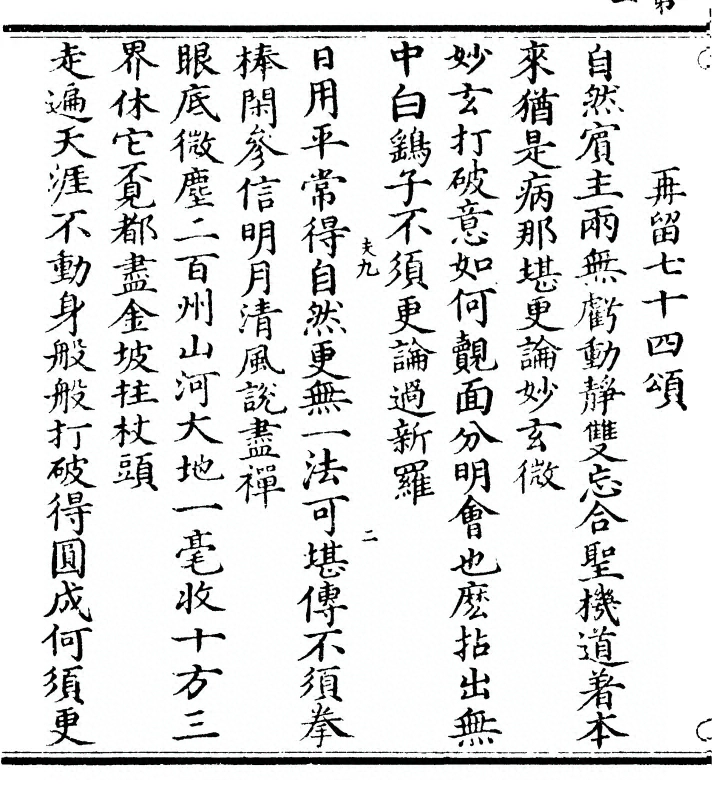 再留七十四頌
自然賓主兩無虧動靜雙忘合聖機道著本
來猶是病那堪更論妙玄微
妙玄打破意如何覿面分明會也麽拈出無
中白鷂子不須更論過新羅
夫九
二
日用平常得自然更無一法可堪傳不須拳
棒閑參信明月清風說盡禪
眼底微塵二百州山河大地一毫收十方三
界休它覔都盡金坡拄杖頭
走遍天涯不動身般般打破得圓成何須更